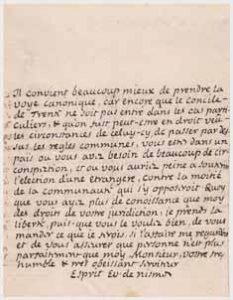 Il convient beaucoup mieux de prendre la
voye canonique, car encore que le concile
de Trente ne doit pas entre dans les cas parti
culiers, & qu'on fuit peut-etre en droit veu
les circonstances de celuy-cy, de passer par des
sus les regles communes, vous estes dans un
pais ou vous avez besoin de beaucoup de cir
conspection, et ou vous auriez peine a sousten
l'election d'une etrangere, contre la moitié
de la communauté qui s'y opposeroit. Quoy
que vous ayez plus de conoissance que moy
des droits de votre jurisdiction, je prends la
liberté, puis que vous le voulez bien, de vous
mander ce que je crois. l'affaire me regarde
et de vous assurer que personne n'est plus
parfaitement que moy Monsieur, votre tres
humble & tres obeissant serviteur
Esprit Ev. de nismes